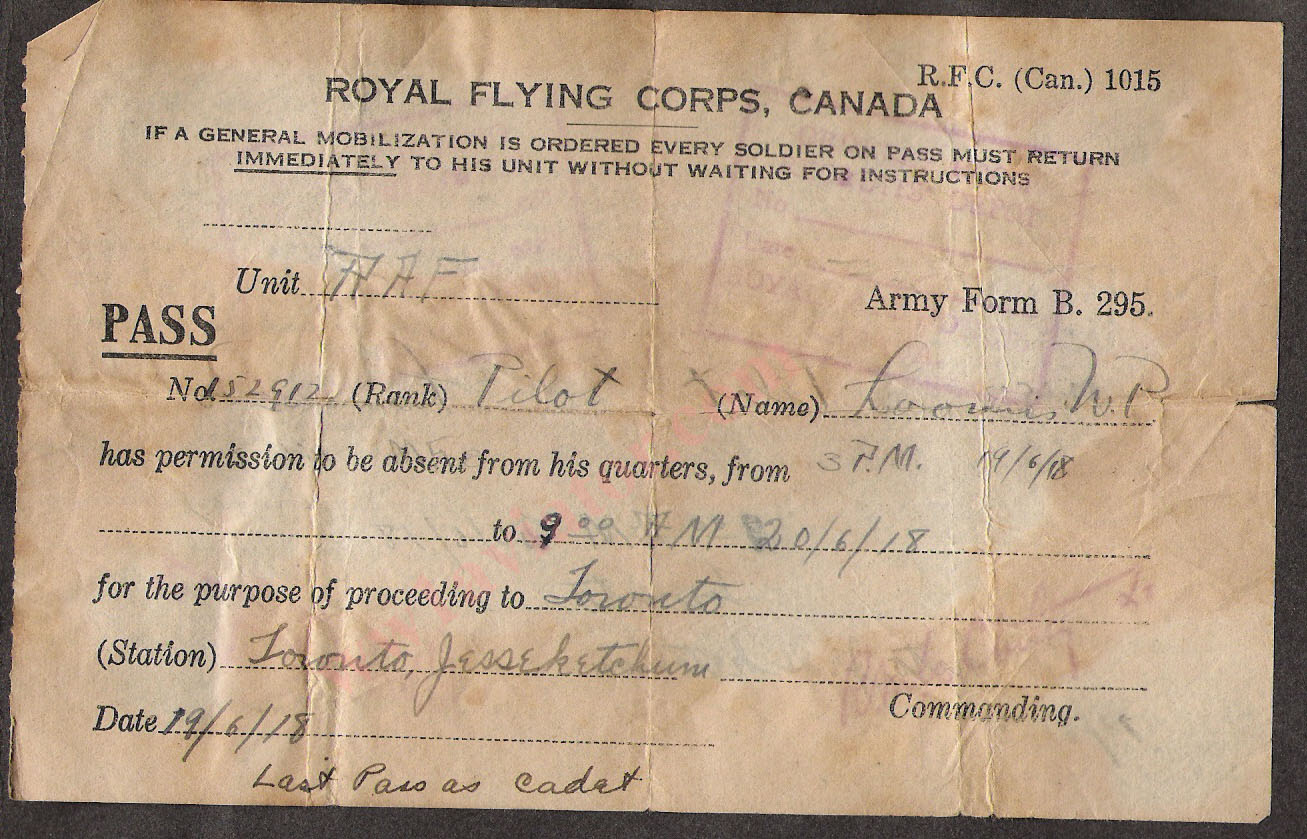 R.F.C. (Can.) 1015
ROYAL FLYING CORPS, CANADA
IF A GENERAL MOBILIZATION IS ORDERED EVERY SOLDIER ON PASS MUST RETURN
IMMEDIATELY TO HIS UNIT WITHOUT WAITING FOR INSTRUCTIONS
Unit RAF
Army Form B. 295.
PASS
No. 152912 (Rank) Pilot (Name) Loomis, W. P.
has permission to be absent from his quarters, from 3 P.M. 19/6/18
to 9 00 A M 20/6/18
for the purpose of proceeding to Toronto
(Station) Toronto, Jesseketchum
Commanding.
Date 19/6/18
Last Pass as cadet